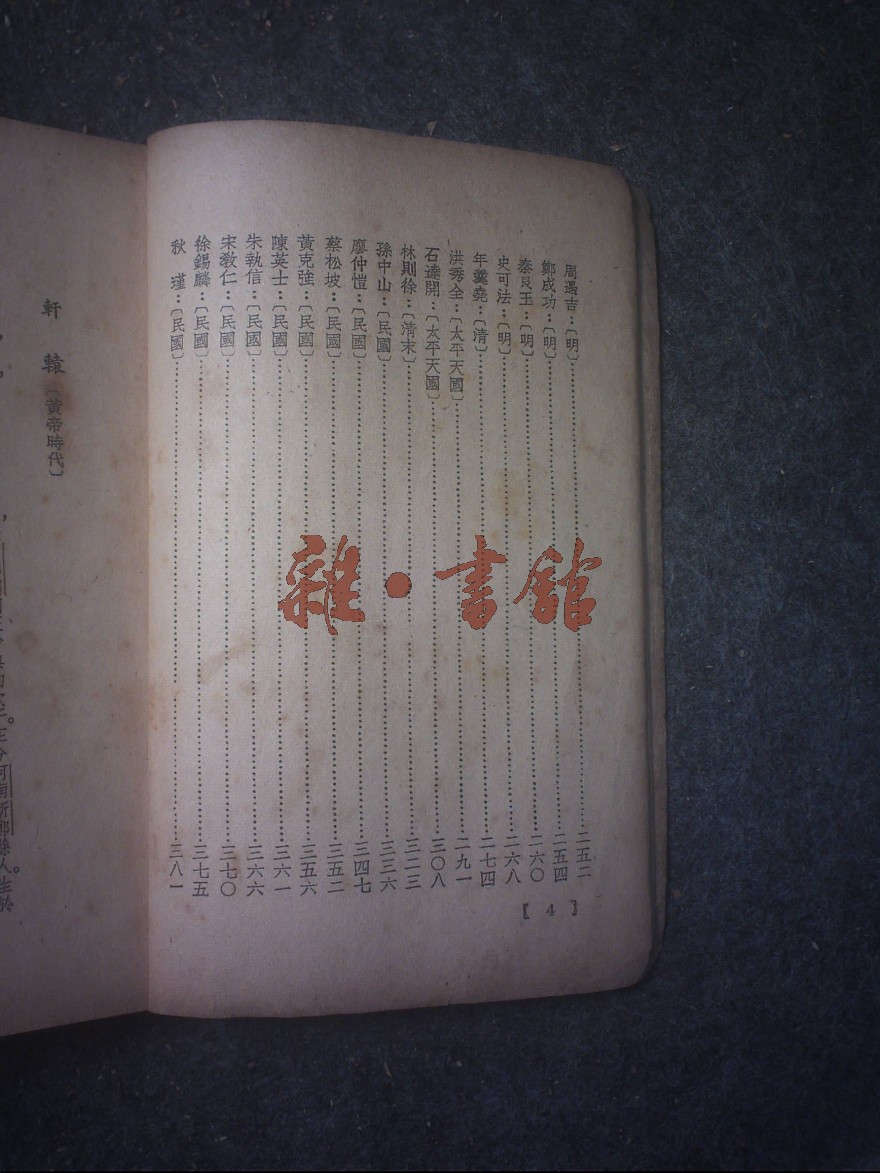 周遇吉：〔明〕……二五二
鄭成功：〔明〕……二五四
秦良玉：〔明〕……二六〇
史可法：〔明〕……二六八
年羹堯：〔清〕……二七四
洪秀全：〔太平天國〕……二九一
石達開：〔太平天國〕……三〇八
林則徐：〔清末〕……三二三
孫中山：〔民國〕……三三六
廖仲愷：〔民國〕……三四七
蔡松坡：〔民國〕……三五二
黃克強：〔民國〕……三五六
陳英士：〔民國〕……三六一
朱執信：〔民國〕……三六六
宋教仁：〔民國〕……三七〇
徐錫麟：〔民國〕……三七五
秋瑾：〔民國〕……三八一
〖4〗
雜·書館
軒轅〔黃帝時代〕
河南新鄭縣人。生於